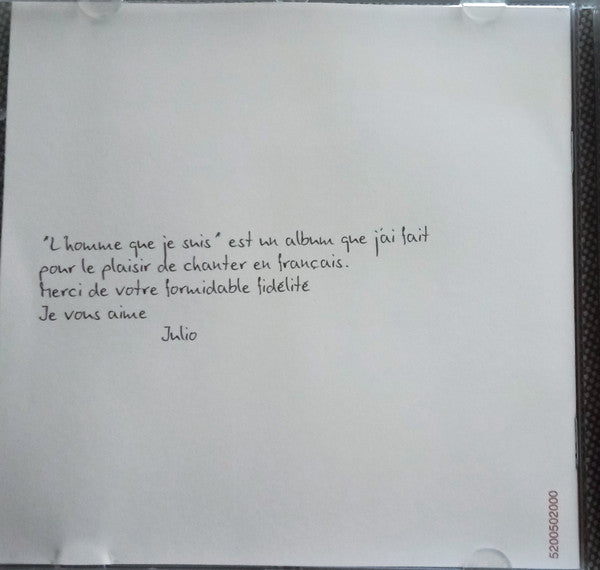 "L'homme que je suis" est un album que j'ai fait
pour le plaisir de chanter en français.
Merci de votre formidable fidélité
Je vous aime
Julio
5200502000